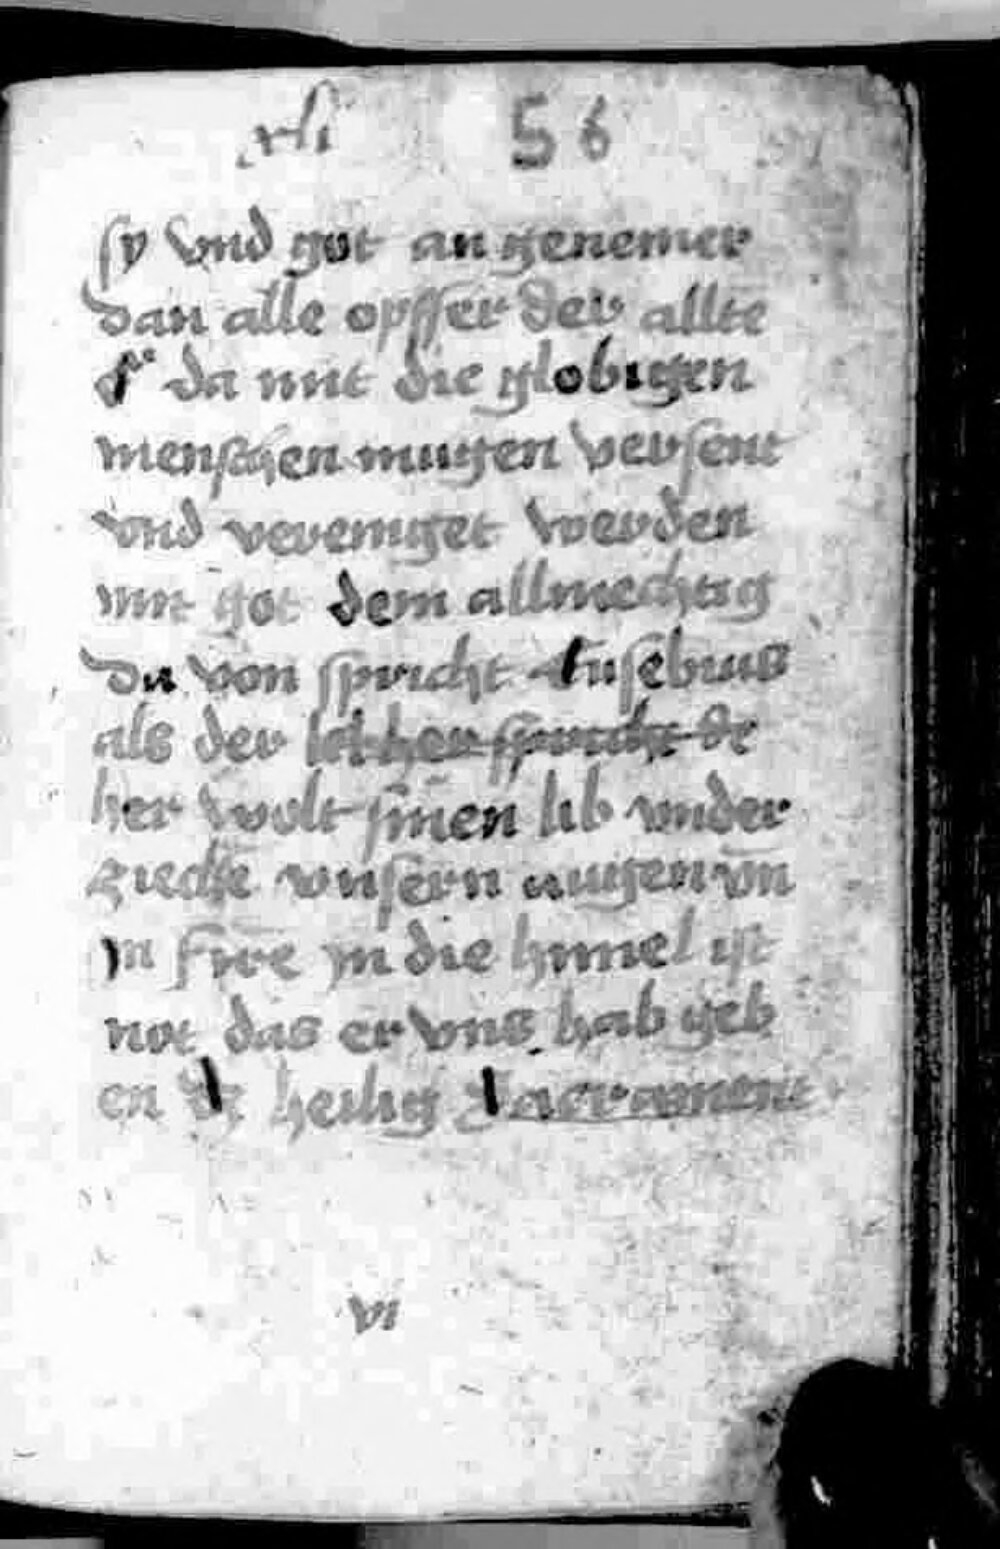 xli 56
sy vnd got an genemer
dan alle opffer der allte
da mit die globigen
menschen mugen versent
vnd vereniget werden
mit got dem allmechtig
Da von spricht Eusebius
als der spricht
her wolt sinen lib vnder
ziechē vnsern augen vn̄
in die himel ist
not das er vns hab geb
en heilig Sacrament
vi